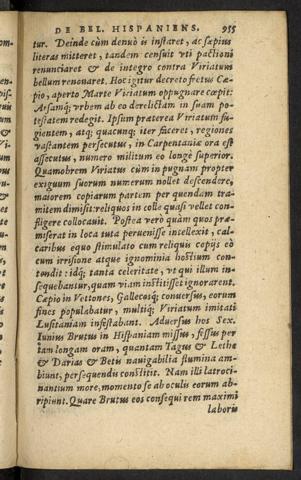 DE BEL. HISPANIENS. 955
tur. Deinde cùm denuò is instaret, ac sæpius
literas mitteret, tandem censuit vti pactioni
renunciaret & de integro contra Viriatum
bellum renouaret. Hoc igitur decreto fretus Cæ-
pio, aperto Marte Viriatum oppugnare cœpit:
Arsamq; vrbem ab eo derelictam in suam po-
testatem redegit. Ipsum præterea Viriatum fu-
gientem, atq; quacunq; iter faceret, regiones
vastantem persecutus, in Carpentania ora est
assecutus, numero militum eo longè superior.
Quamobrem Viriatus cùm in pugnam propter
exiguum suorum numerum nollet descendere,
maiorem copiarum partem per quendam tra-
mitem dimisit: reliquos in colle quasi vellet con-
fligere collocauit. Postea verò quàm quos præ-
miserat in loca tuta peruenisse intellexit, cal-
caribus equo stimulato cum reliquis copijs eò
cum irrisione atque ignominia hostium con-
tondit: idq; tanta celeritate, vt qui illum in-
sequebantur, quam viam institisset ignorarent.
Cæpio in Vettones, Gallecosq; conuersus, eorum
fines populabatur, multiq; Viriatum imitati
Lusitaniam infestabant. Aduersus hos Sex.
Iunius Brutus in Hispaniam missus, fessus per
tam longam oram, quantam Tagus & Lethe
& Darias & Betis nauigabilia flumina am-
biunt, persequendis constitit. Nam illi latroci-
nantium more, momento se ab oculis eorum ab-
ripiunt. Quare Brutus eos consequi rem maximi
laboris